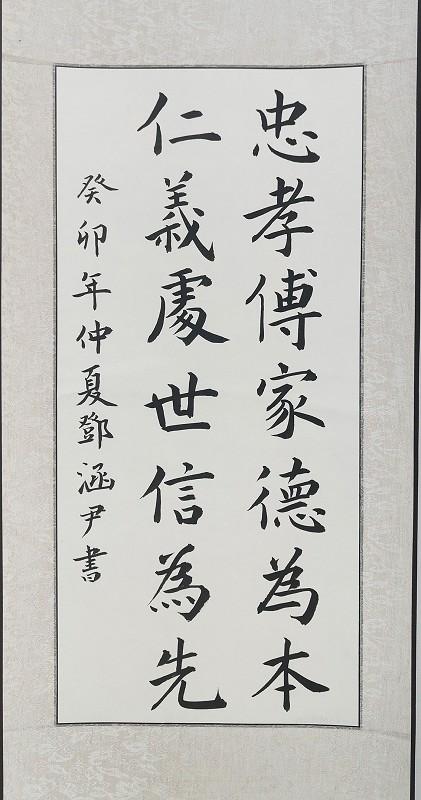 忠孝傳家德為本
仁義處世信為先
癸卯年仲夏鄧涵尹書